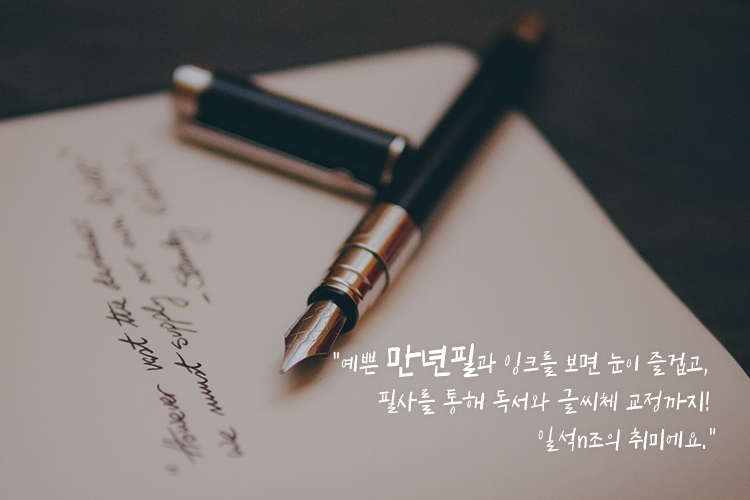 "예쁜 만년필과 잉크를 보면 눈이 즐겁고,
필사를 통해 독서와 글씨체 교정까지!
일석n조의 취미에요."
"However vast the darkness
we must supply our own